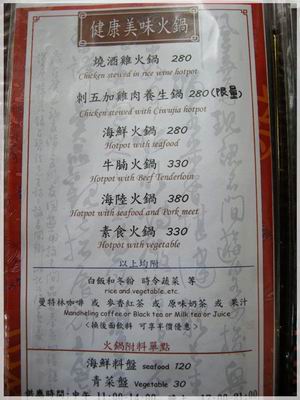 健康美味火鍋
燒酒雞火鍋 280
Chicken stewed in rice wine hotpot
刺五加雞肉養生鍋 280(限量)
Chicken stewed with Ciwujia hotpot
海鮮火鍋 280
Hotpot with seafood
牛腩火鍋 330
Hotpot with Beef Tenderloin
海陸火鍋 380
Hotpot with seafood and Pork meet
素食火鍋 330
Hotpot with vegetable
以上均附
白飯和冬粉 時令蔬菜 等
rice and vegetable..etc.
曼特林咖啡 或 麥香紅茶 或 原味奶茶 或 果汁
Mandheling coffee or Black tea or Milk tea or Juice
<換後面飲料 可享半價優惠>
火鍋附料單點
海鮮料盤 seafood 120
青菜盤 Vegetable 30